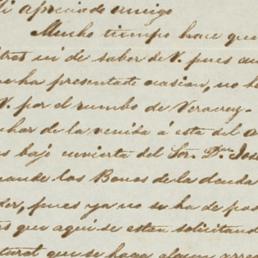 i aprecio de amigo
Mucho tiempo hace que
tras ni de saber de V. pues au
ha presentado ocasion, no h
V. por el rumbo de Veracruz.
char de la venida á este del
s bajo cuvierta del Sor. Dn. José
ande los Bonos de la deuda
der, pues ya no se ha de pos
rs que aqui se estan solicitando
tural que se haga algun arre